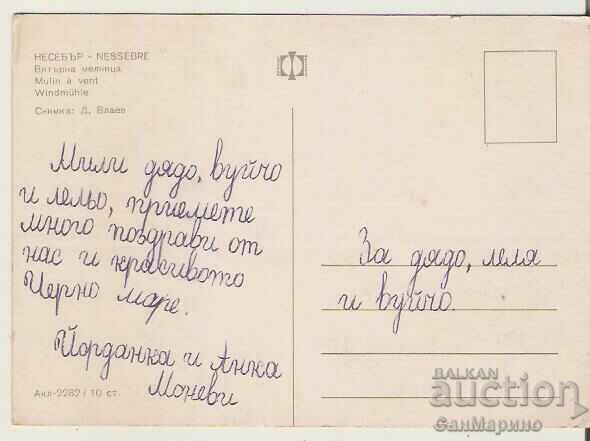 НЕСЕБЪР - NESSEBRE
Вятърна мелница
Mulin à vent
Windmühle
Снимка: Д. Влаев
Мили дядо, вуйчо
и лельо, приемете
много поздрави от
нас и красивото
Черно море.
Йорданка и Анка
Моневи
Акл-2282 / 10 ст.
За дядо, леля
и вуйчо.
BALKAN
auction
СанМарино